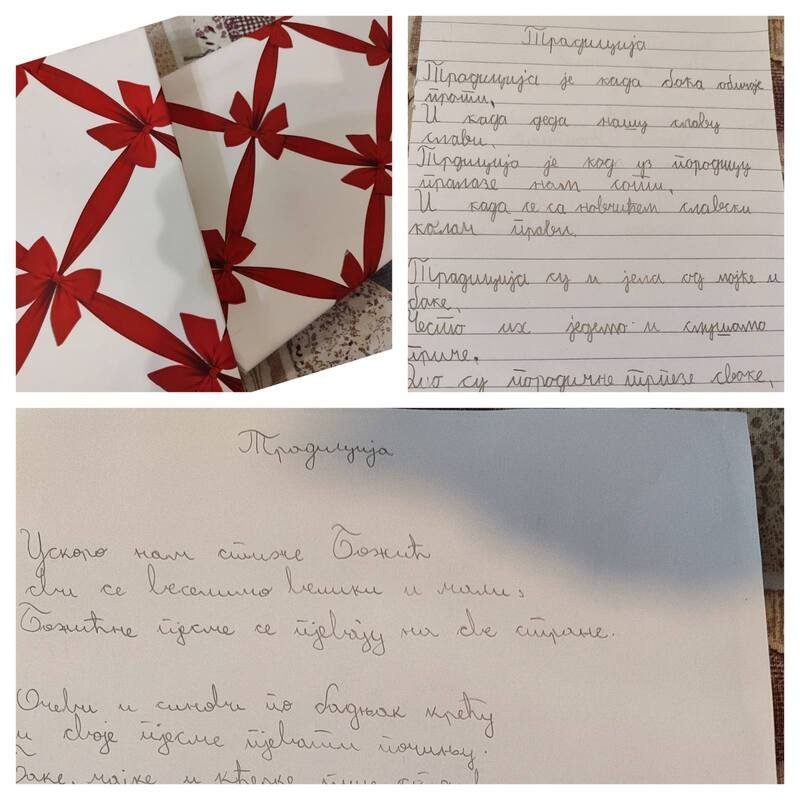 Традиција
Традиција је када бака обичаје
прати,
И када деда нашу славу
слави.
Трдиција је кад уз породицу
пролазе нам сати,
И када се са новчићем славски
колач прави.
Традиција су и јела од мајке и
баке,
Често их једемо и слушамо
приче,
су породичне трпезе сваке,
Традиција
Ускоро нам стиже Божић
сви се веселимо велики и мали,
Божићне пјесме се пјевају на све стране.
Очеви и синови по бадњак крећу
и своје пјесме пјевати почињу.
Баке, мајке и кћерке